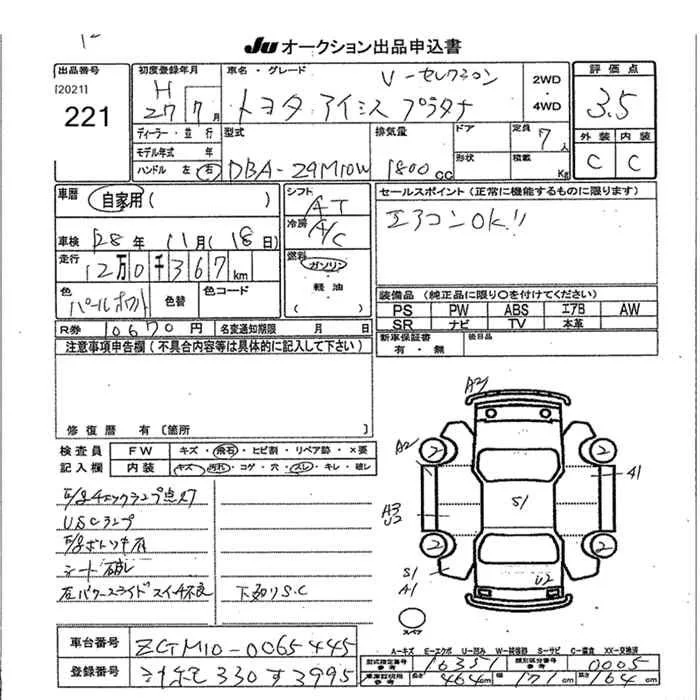 JU オークション出品申込書
出品番号
[2021]
221
初度登録年月
H
27 7月
ディーラー・並行
モデル年式 年
ハンドル 左 右
車名・グレード
V-セレクション
トヨタ アイシス プラタナ
型式
DBA-
排気量
1800 CC
2WD
・
4WD
ドア
形状
定員 7人
積載 Kg
評価点
3.5
外装 内装
C C
車歴
自家用( )
車検 28年 11月(18日)
走行
12万0千367km
色
パールホワイト
色替
色コード
R券 10670円
名変通知期限 月 日
シフト
AT
冷房
A/C
燃料
ガソリン
・
軽油
( )
セールスポイント(正常に機能するものに限ります)
エアコンOK!!
装備品(純正品に限り○を付けてください)
PS PW ABS エアB AW
SR ナビ TV 本革
新車保証書
有・無
後日品
注意事項申告欄(不具合内容等は具体的に記入して下さい)
修復歴 有 〔箇所 〕
検査員
記入欄
FW キズ・飛石・ヒビ割・リペア跡・×要
内装 キズ・汚れ・コゲ・穴・スレ・キレ・破レ
チェックランプ点灯
ランプ
シート破レ
パワースライドスイッチ不良
下廻りS.C
A2
A2
2
2
A3
U2
S1
A1
2
2
S1
A1
U2
スペア
A-キズ E-エクボ U-凹み W-補修跡 S-サビ C-腐食 XX-交換済
車台番号 ZGM10-0065445
登録番号 330 す 3995
型式指定番号
参考
16351
類別区分番号
参考
0005
車庫証明用
参考
長さ 464cm 幅 171cm 高さ 164cm